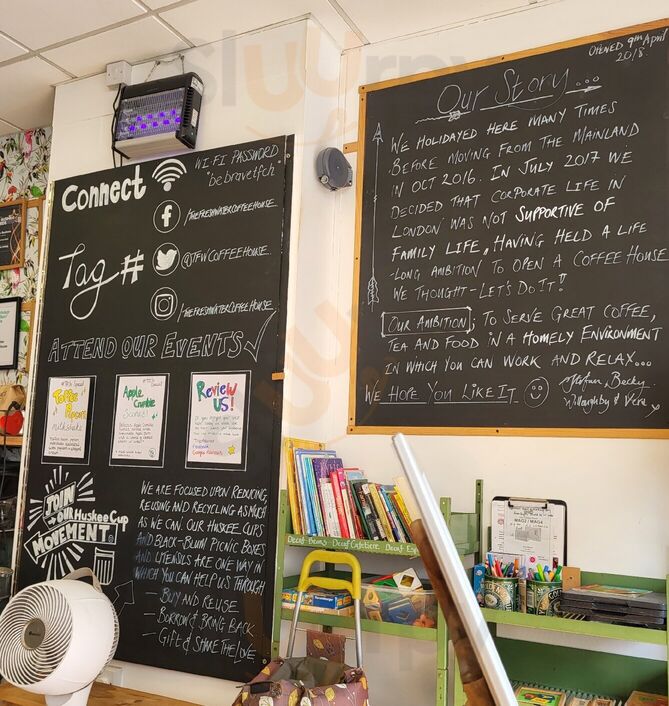 OPENED 9TH April
2018.
Our Story...
WE HOLIDAYED HERE MANY TIMES
BEFORE MOVING FROM THE MAINLAND
IN OCT 2016. IN JULY 2017 WE
DECIDED THAT CORPORATE LIFE IN
LONDON WAS NOT SUPPORTIVE OF
FAMILY LIFE, HAVING HELD A LIFE
-LONG AMBITION TO OPEN A COFFEE HOUSE
WE THOUGHT - LET'S DO IT!!
OUR AMBITION; TO SERVE GREAT COFFEE,
TEA AND FOOD IN A HOMELY ENVIRONMENT
IN WHICH YOU CAN WORK AND RELAX...
WE HOPE YOU LIKE IT
Becky,
Willoughby & Vera
Connect
WI-FI PASSWORD
"be bravetfch"
/THEFRESHWATERCOFFEEHOUSE
Tag #
@TFWCOFFEEHOUSE
/THEFRESHWATERCOFFEEHOUSE
ATTEND OUR EVENTS
Toffee
Popcorn
milkshake
Apple
Crumble
Scones!
Review
US!
JOIN
OUR HuskeeCup
MOVEMENT
WE ARE FOCUSED UPON REDUCING,
REUSING AND RECYCLING AS MUCH
AS WE CAN. OUR HUSKEE CUPS
AND BLACK+BLUM PICNIC BOXES
AND UTENSILS ARE ONE WAY IN
WHICH YOU CAN HELP US THROUGH
- BUY AND REUSE
- BORROW & BRING BACK
- GIFT & SHARE THE LOVE
Decaf Beans Decaf Cafetiere Decaf